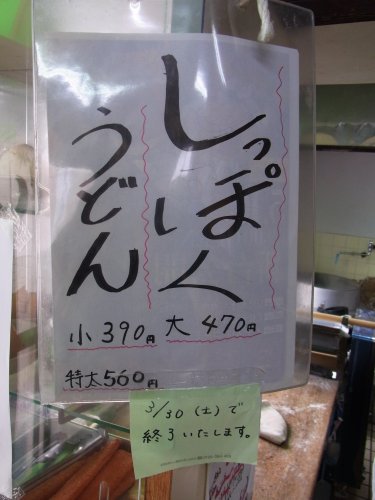 しっぽく
うどん
小390円 大470円
特大560円
3/30(土)で
終了いたします。